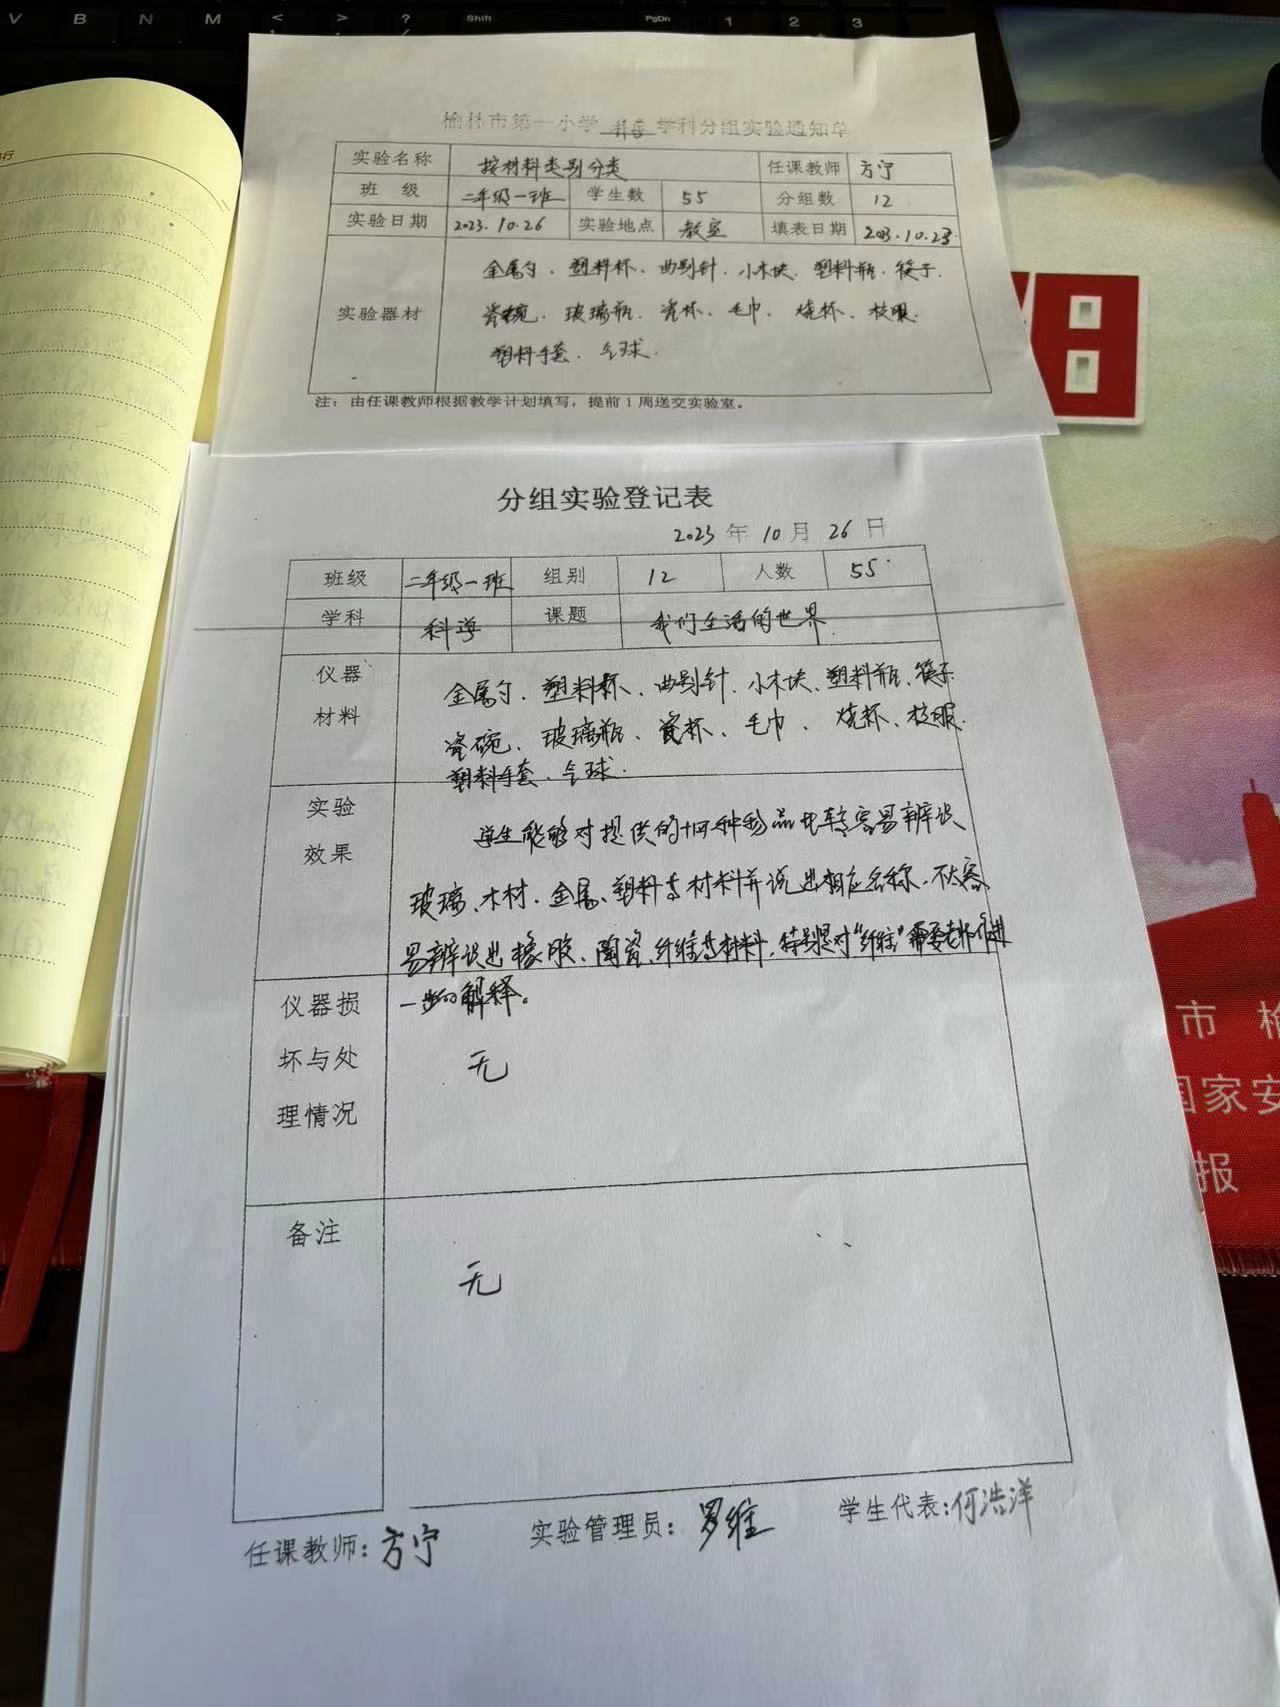 V B N M < > ? / Shift PgDn 1 2 3
行
榆林市第一小学 科学 学科分组实验通知单
实验名称 按材料类别分类 任课教师 方宁
班 级 二年级一班 学生数 55 分组数 12
实验日期 2023.10.26 实验地点 教室 填表日期 2023.10.23.
金属勺、塑料杯、曲别针、小木块、塑料瓶、筷子、
实验器材 瓷碗、玻璃瓶、瓷杯、毛巾、烧杯、校服、
塑料手套、气球.
注：由任课教师根据教学计划填写，提前1周送交实验室。
分组实验登记表
2023 年 10 月 26 日
班级 二年级一班 组别 12 人数 55
学科 科学 课题 我们生活的世界
仪器 金属勺、塑料杯、曲别针、小木块、塑料瓶、筷子
材料 瓷碗、玻璃瓶、瓷杯、毛巾、烧杯、校服、
塑料手套、气球.
实验 学生能够对提供的十四种物品比较容易辨识
效果 玻璃、木材、金属、塑料等材料并说出相应名称，不太容
易辨识出橡胶、陶瓷、纤维等材料，特别是对“纤维”需要老师作进
仪器损 一步的解释。
坏与处 无
理情况
备注
无
任课教师：方宁 实验管理员：罗维 学生代表：何浩洋
市 榆
国家安
报